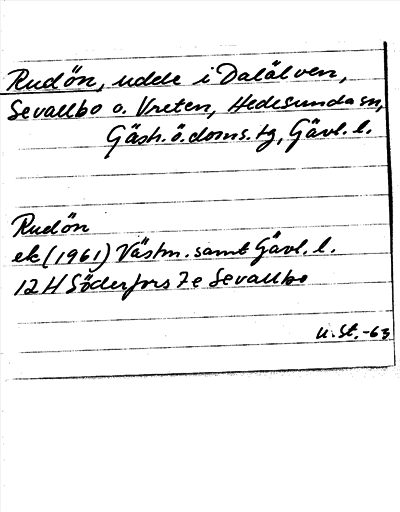 Rudön, udde i Dalälven,
Sevallbo o. Vreten, Hedesunda sn,
Gästr. ö. doms. tg, Gävl. l.
Rudön
ek (1961) Västm. samt Gävl. l.
12 H Söderfors 7 e Sevallbo
U. St. -63